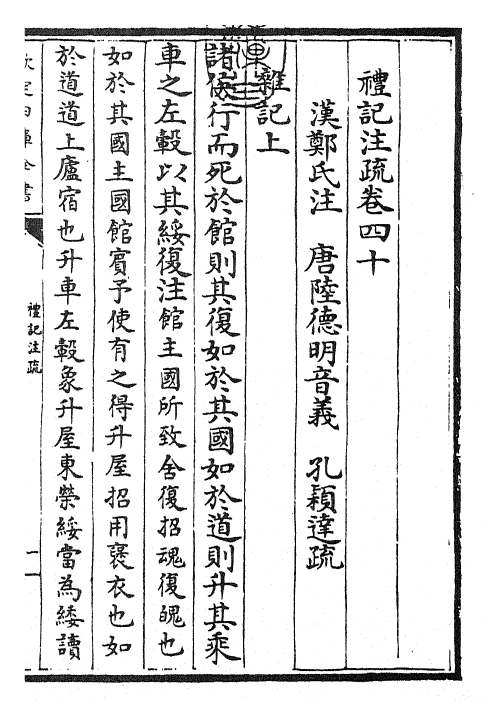 禮記注疏卷四十
漢鄭氏注　唐陸德明音義　孔穎達疏
雜記上
諸侯行而死於館則其復如於其國如於道則升其乘
車之左轂以其綏復注館主國所致舍復招魂復魄也
如於其國主國館賔予使有之得升屋招用襃衣也如
於道道上廬宿也升車左轂象升屋東榮綏當為緌讀
禮記注疏
一
欽定四庫全書